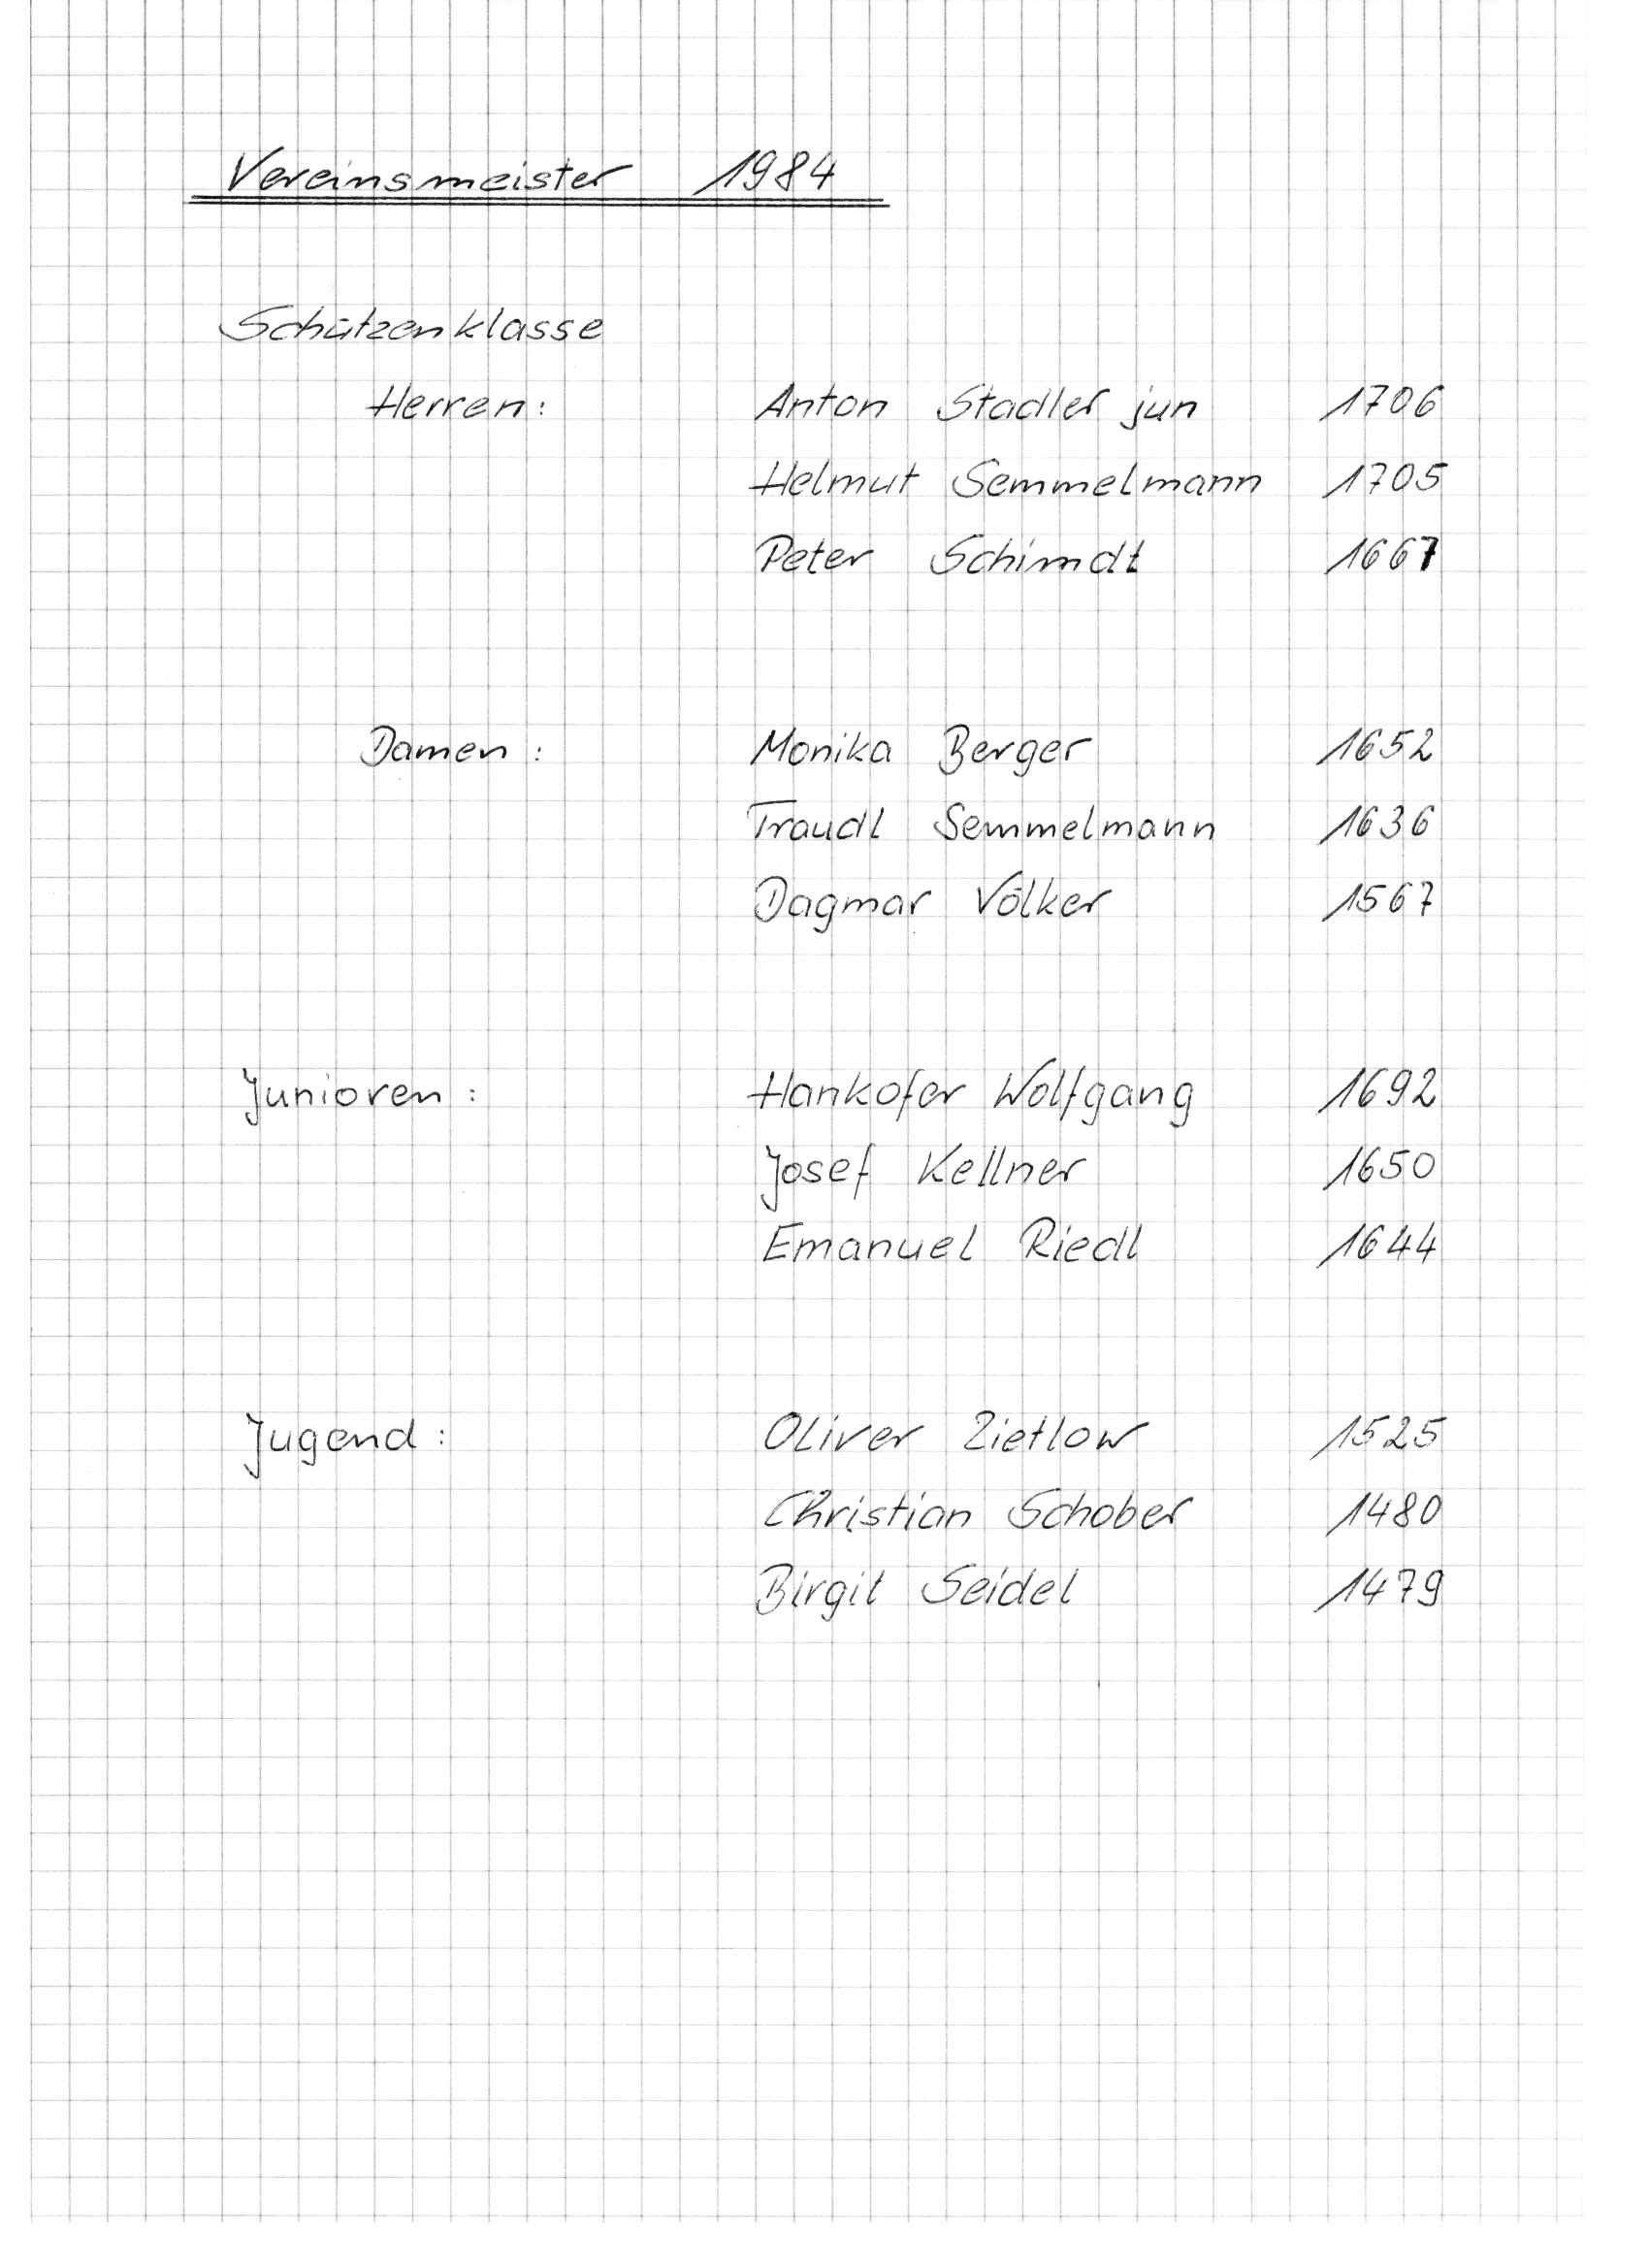 Vereinsmeister 1984
Schützenklasse
Herren: Anton Stadler jun 1706
Helmut Semmelmann 1705
Peter Schimdt 1667
Damen: Monika Berger 1652
Traudl Semmelmann 1636
Dagmar Völker 1567
Junioren: Hankofer Wolfgang 1692
Josef Kellner 1650
Emanuel Riedl 1644
Jugend: Oliver Zietlow 1525
Christian Schober 1480
Birgit Seidel 1479